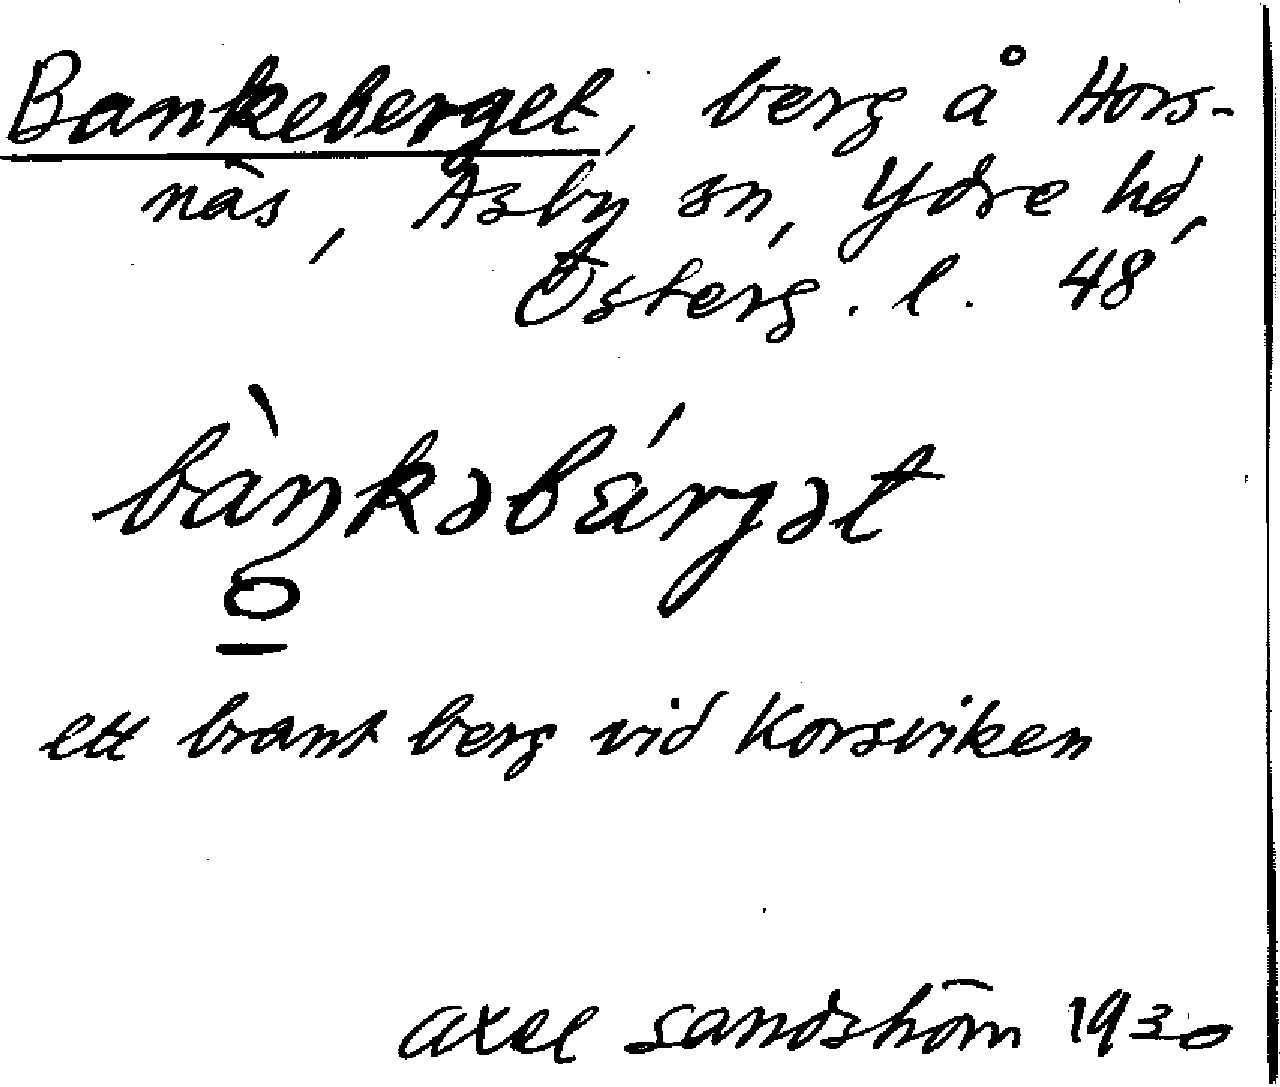 Bankeberget, berg å Hors-
näs, Asby sn, Ydre hd,
Österg. l. 48
bàŋkəbǽrgət
ett brant berg vid Korsviken
Axel Sandström 1930